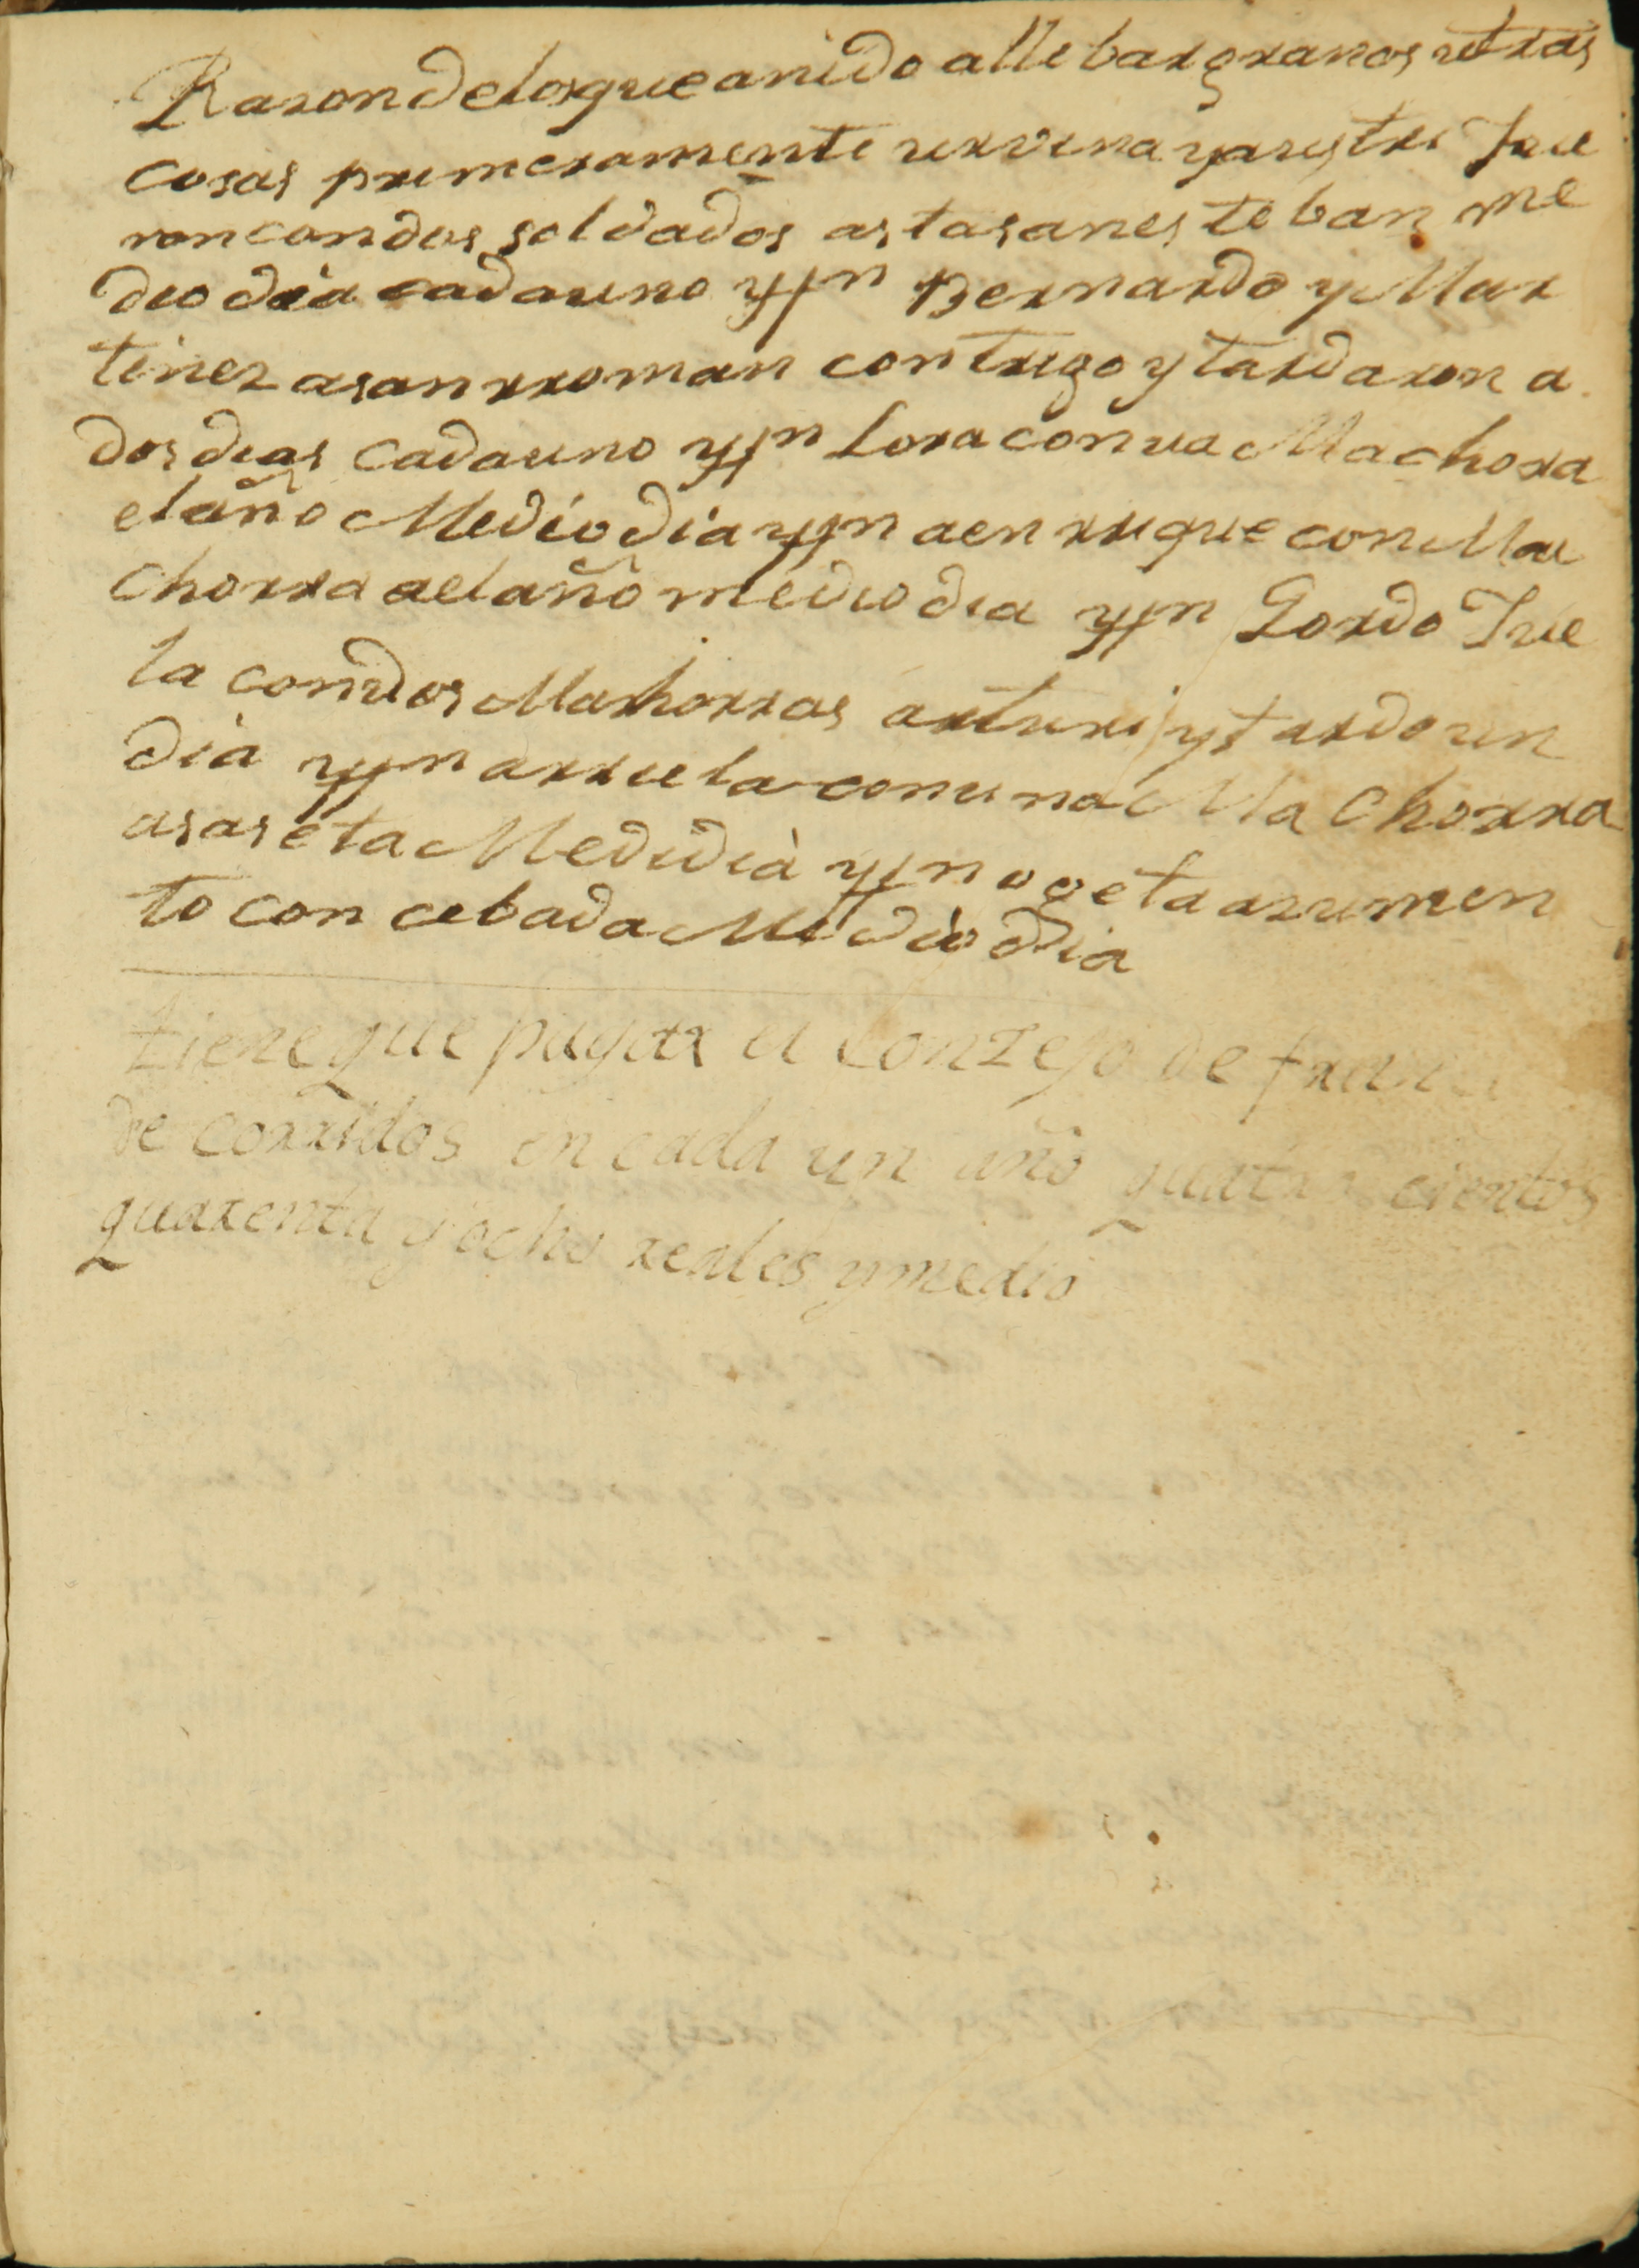 Razon de los que an ido allebar granos u otras
cosas primeramente urvina yarystri Fue
ron con dos soldados asta san esteban me
dio dia cada uno yttn Bernardo y Mar
tinez asan rroman con trigo y tardaron a
dos dias cada uno yttn Lora con va Machora
elaño Medio dia yttn aenrrique con Ma
chorra aelaño medio dia yttn Gordo Fue
la con dos Machorras arturi y tardo un
dia yttn arruela con una Machorra
asaseta Medidia yttn ogeta azumen
to con cebada Medio dia
tiene que pagar el Conzejo de
de corridos en cada un año quatro cientos
quarenta y ocho reales y medio